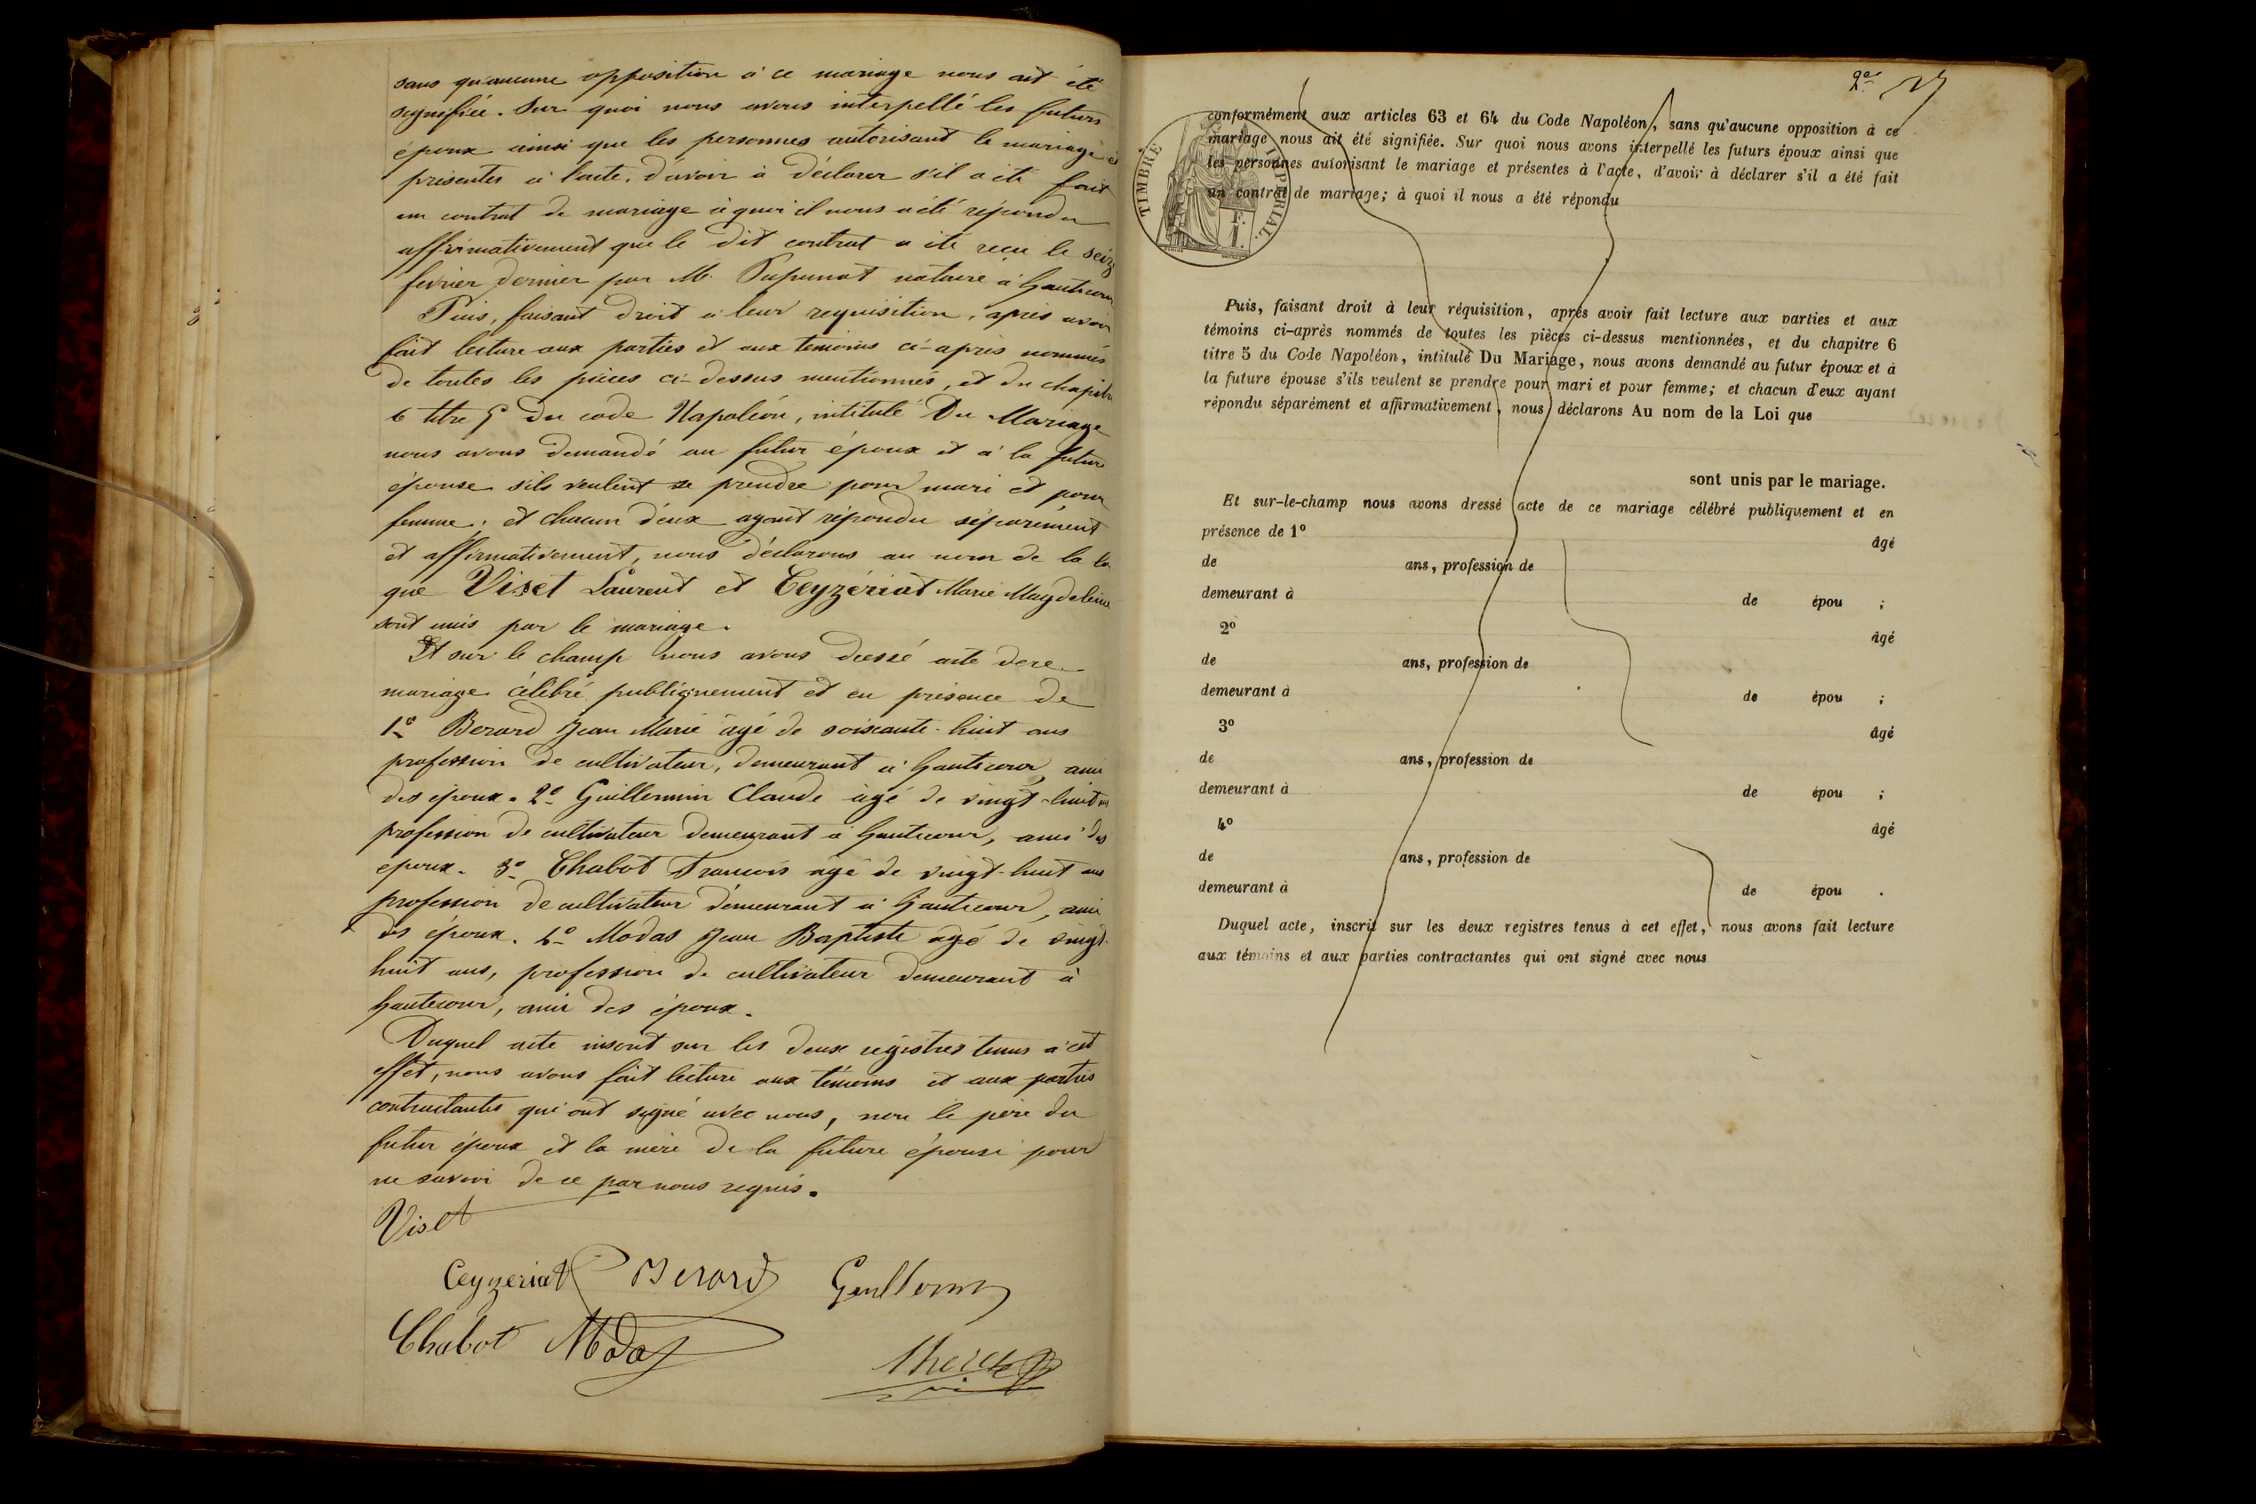 sans qu'aucune opposition à ce mariage nous ait été
signifiée. Sur quoi nous avons interpellé les futurs
époux ainsi que les personnes autorisant le mariage et
présentes à l'acte, d'avoir à déclarer s'il a été fait
un contrat de mariage à quoi il nous a été répondu
affirmativement que le dit contrat a été reçu le seize
février dernier par M. notaire à Hautecour
Puis, faisant droit à leur requisition, après avoir
fait lecture aux parties et aux témoins ci-après nommés
de toutes les pièces ci-dessus mentionnés, et du chapitre
6 titre 5 du code Napoléon, intitulé Du Mariage
nous avons demandé au futur époux et à la future
épouse s'ils veulent se prendre pour mari et pour
femme; et chacun d'eux ayant répondu séparément
et affirmativement, nous déclarons au nom de la loi
que Viset Laurent et Ceyzériat Marie Magdeleine
sont unis par le mariage.
Et sur le champ nous avons dressé acte de ce
mariage célébré publiquement et en présence de
1º Berard Jean Marie âgé de soixante-huit ans
profession de cultivateur, demeurant à Hautecour, ami
des époux. 2º Guillermin Claude âgé de vingt-huit ans
profession de cultivateur demeurant à Hautecour, ami des
époux. 3º Chabot François âgé de vingt-huit ans
profession de cultivateur demeurant à Hautecour, ami
des époux. 4º Modas Jean Baptiste âgé de vingt-
huit ans, profession de cultivateur demeurant à
Hautecour, ami des époux.
Duquel acte inscrit sur les deux registres tenus à cet
effet, nous avons fait lecture aux témoins et aux parties
contractantes qui ont signé avec nous, non le père du
futur époux et la mère de la future épouse pour
ne savoir de ce par nous requis.
Viset
Ceyzeriat Berard Guillermin
Chabot Modas
2e
TIMBRE IMPERIAL
conformément aux articles 63 et 64 du Code Napoléon, sans qu'aucune opposition à ce
mariage nous ait été signifiée. Sur quoi nous avons interpellé les futurs époux ainsi que
les personnes autorisant le mariage et présentes à l'acte, d'avoir à déclarer s'il a été fait
un contrat de mariage; à quoi il nous a été répondu
Puis, faisant droit à leur réquisition, après avoir fait lecture aux parties et aux
témoins ci-après nommés de toutes les pièces ci-dessus mentionnées, et du chapitre 6
titre 5 du Code Napoléon, intitulé Du Mariage, nous avons demandé au futur époux et à
la future épouse s'ils veulent se prendre pour mari et pour femme; et chacun d'eux ayant
répondu séparément et affirmativement, nous déclarons Au nom de la Loi que
sont unis par le mariage.
Et sur-le-champ nous avons dressé acte de ce mariage célébré publiquement et en
présence de 1º âgé
de ans, profession de
demeurant à de épou ;
2º âgé
de ans, profession de
demeurant à de épou ;
3º âgé
de ans, profession de
demeurant à de épou ;
4º âgé
de ans, profession de
demeurant à de épou .
Duquel acte, inscrit sur les deux registres tenus à cet effet, nous avons fait lecture
aux témoins et aux parties contractantes qui ont signé avec nous